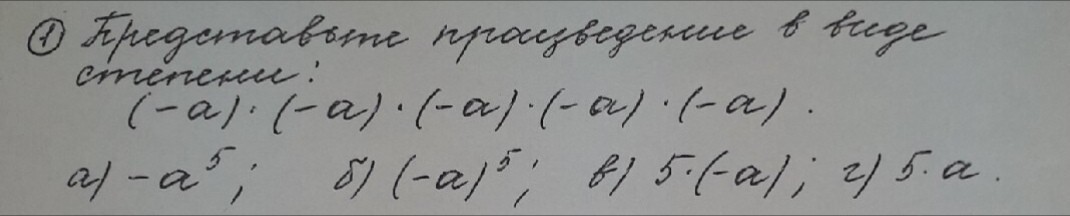 ① Представьте произведение в виде
степени:
(-a)·(-a)·(-a)·(-a)·(-a).
а) -a⁵; б) (-a)⁵; в) 5·(-a); г) 5·a.